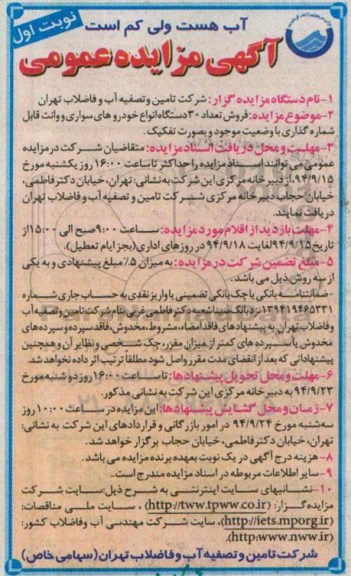 آب هست ولی کم است
نوبت اول
آگهی مزایده عمومی
۱-نام دستگاه مزایده گزار: شرکت تامین وتصفیه آب و فاضلاب تهران
۲-موضوع مزایده: فروش تعداد ۳۰ دستگاه انواع خودرو های سواری و وانت قابل
شماره گذاری با وضعیت موجود و بصورت تفکیک.
۳- مهلت و محل دریافت اسناد مزایده: متقاضیان شرکت در مزایده
عمومی می توانند اسناد مزایده را حداکثر تا ساعت ۱۶:۰۰ روز یکشنبه مورخ
۹۴/۹/۱۵، از دبیرخانه مرکزی این شرکت به نشانی: تهران، خیابان دکتر فاطمی،
خیابان حجاب دبیرخانه مرکزی شرکت تامین و تصفیه آب و فاضلاب تهران
دریافت نمایند.
۴- مهلت بازدید از اقلام مورد مزایده: ساعت ۹:۰۰ صبح الی ۱۵:۰۰ از
تاریخ ۹۴/۹/۱۵ لغایت ۹۴/۹/۱۸ در روزهای اداری (بجز ایام تعطیل).
۵- مبلغ تضمین شرکت در مزایده: به میزان ۵٪ مبلغ پیشنهادی و به یکی
از سه روش ذیل می باشد.
-ضمانتنامه بانکی یا چک بانکی تضمینی یا واریز نقدی به حساب جاری شماره
نزد بانک سینا شعبه دکتر فاطمی غربی بنام شرکت تامین و تصفیه آب
وفاضلاب تهران. به پیشنهادهای فاقد امضاء، مشروط، مخدوش، فاقد سپرده و سپرده های
مخدوش یا سپرده های کمتر از میزان مقرر، چک شخصی و نظایر آن و همچنین
پیشنهاداتی که بعد از انقضای مدت مقرر واصل شود مطلقا ترتیب اثر داده نخواهد شد.
۶- مهلت و محل تحویل پیشنهادها: تا ساعت ۱۶:۰۰ روز دوشنبه مورخ
۹۴/۹/۲۳ به دبیرخانه مرکزی این شرکت به نشانی مذکور.
۷- زمان و محل گشایش پیشنهادها: این مزایده در ساعت ۱۰:۰۰ روز
سه شنبه مورخ ۹۴/۹/۲۴ در امور بازرگانی و قراردادهای این شرکت به نشانی:
تهران، خیابان دکتر فاطمی، خیابان حجاب برگزار خواهد شد.
۸- هزینه درج آگهی در یک نوبت بعهده برنده مزایده می باشد.
۹- سایر اطلاعات مربوطه در اسناد مزایده مندرج است.
۱۰- نشانیهای سایت اینترنتی به شرح ذیل: سایت شرکت
مزایده گزار: (http://tww.tpww.co.ir) ، سایت ملی مناقصات:
(http://iets.mporg.ir)، سایت شرکت مهندسی آب وفاضلاب کشور:
(http:www.nww.ir).
شرکت تامین و تصفیه آب و فاضلاب تهران (سهامی خاص)